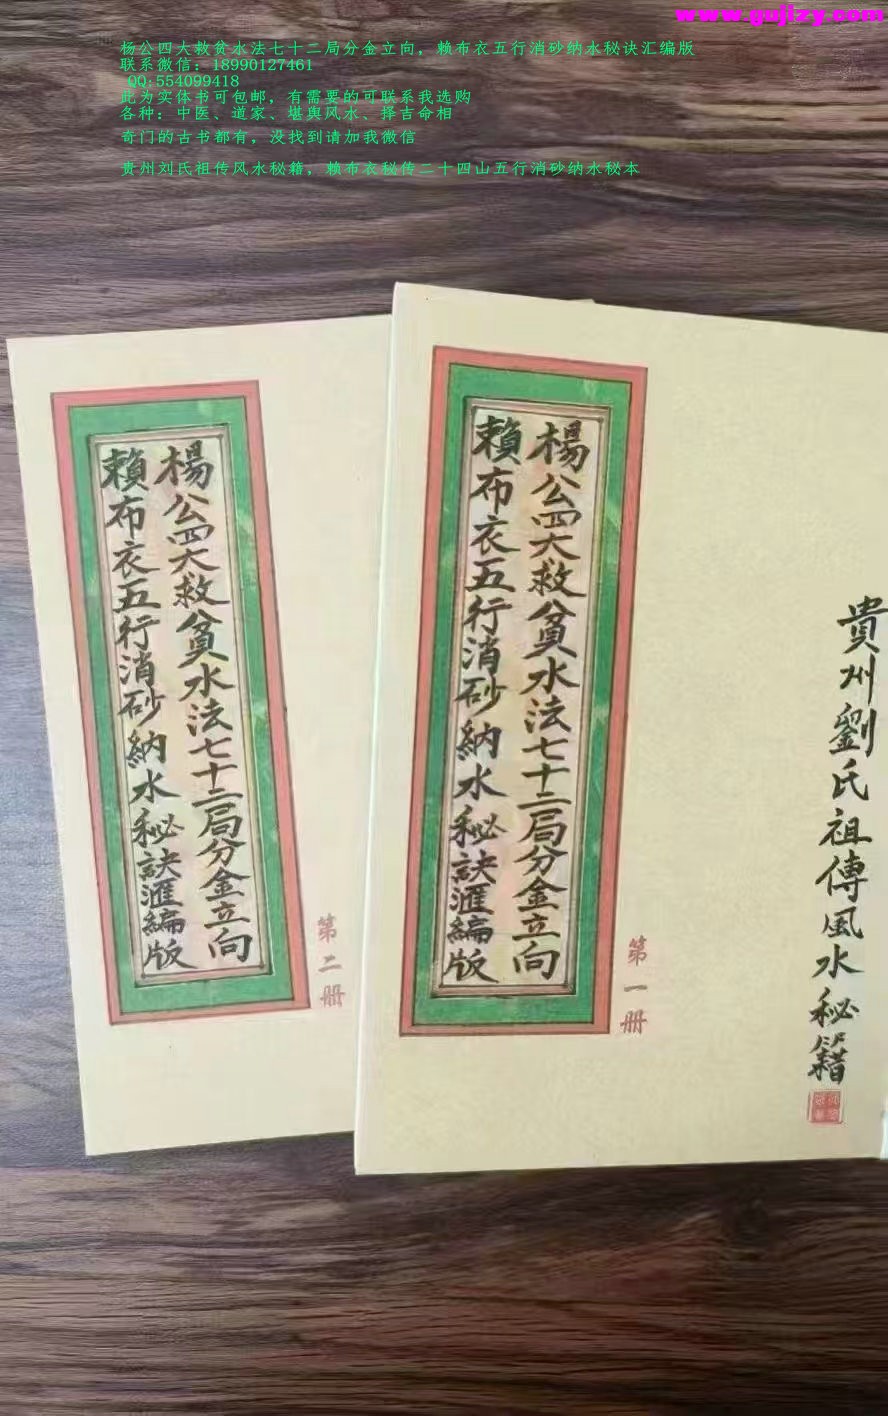 www.gujizy.com
杨公四大救贫水法七十二局分金立向，赖布衣五行消砂纳水秘诀汇编版
联系微信：18990127461
QQ:554099418
此为实体书可包邮，有需要的可联系我选购
各种：中医、道家、堪舆风水、择吉命相
奇门的古书都有，没找到请加我微信
贵州刘氏祖传风水秘籍，赖布衣秘传二十四山五行消砂纳水秘本
貴州劉氏祖傳風水秘籍
楊公四大救貧水法七十二局分金立向
賴布衣五行消砂納水秘訣滙編版
第一册
楊公四大救貧水法七十二局分金立向
賴布衣五行消砂納水秘訣滙編版
第二册